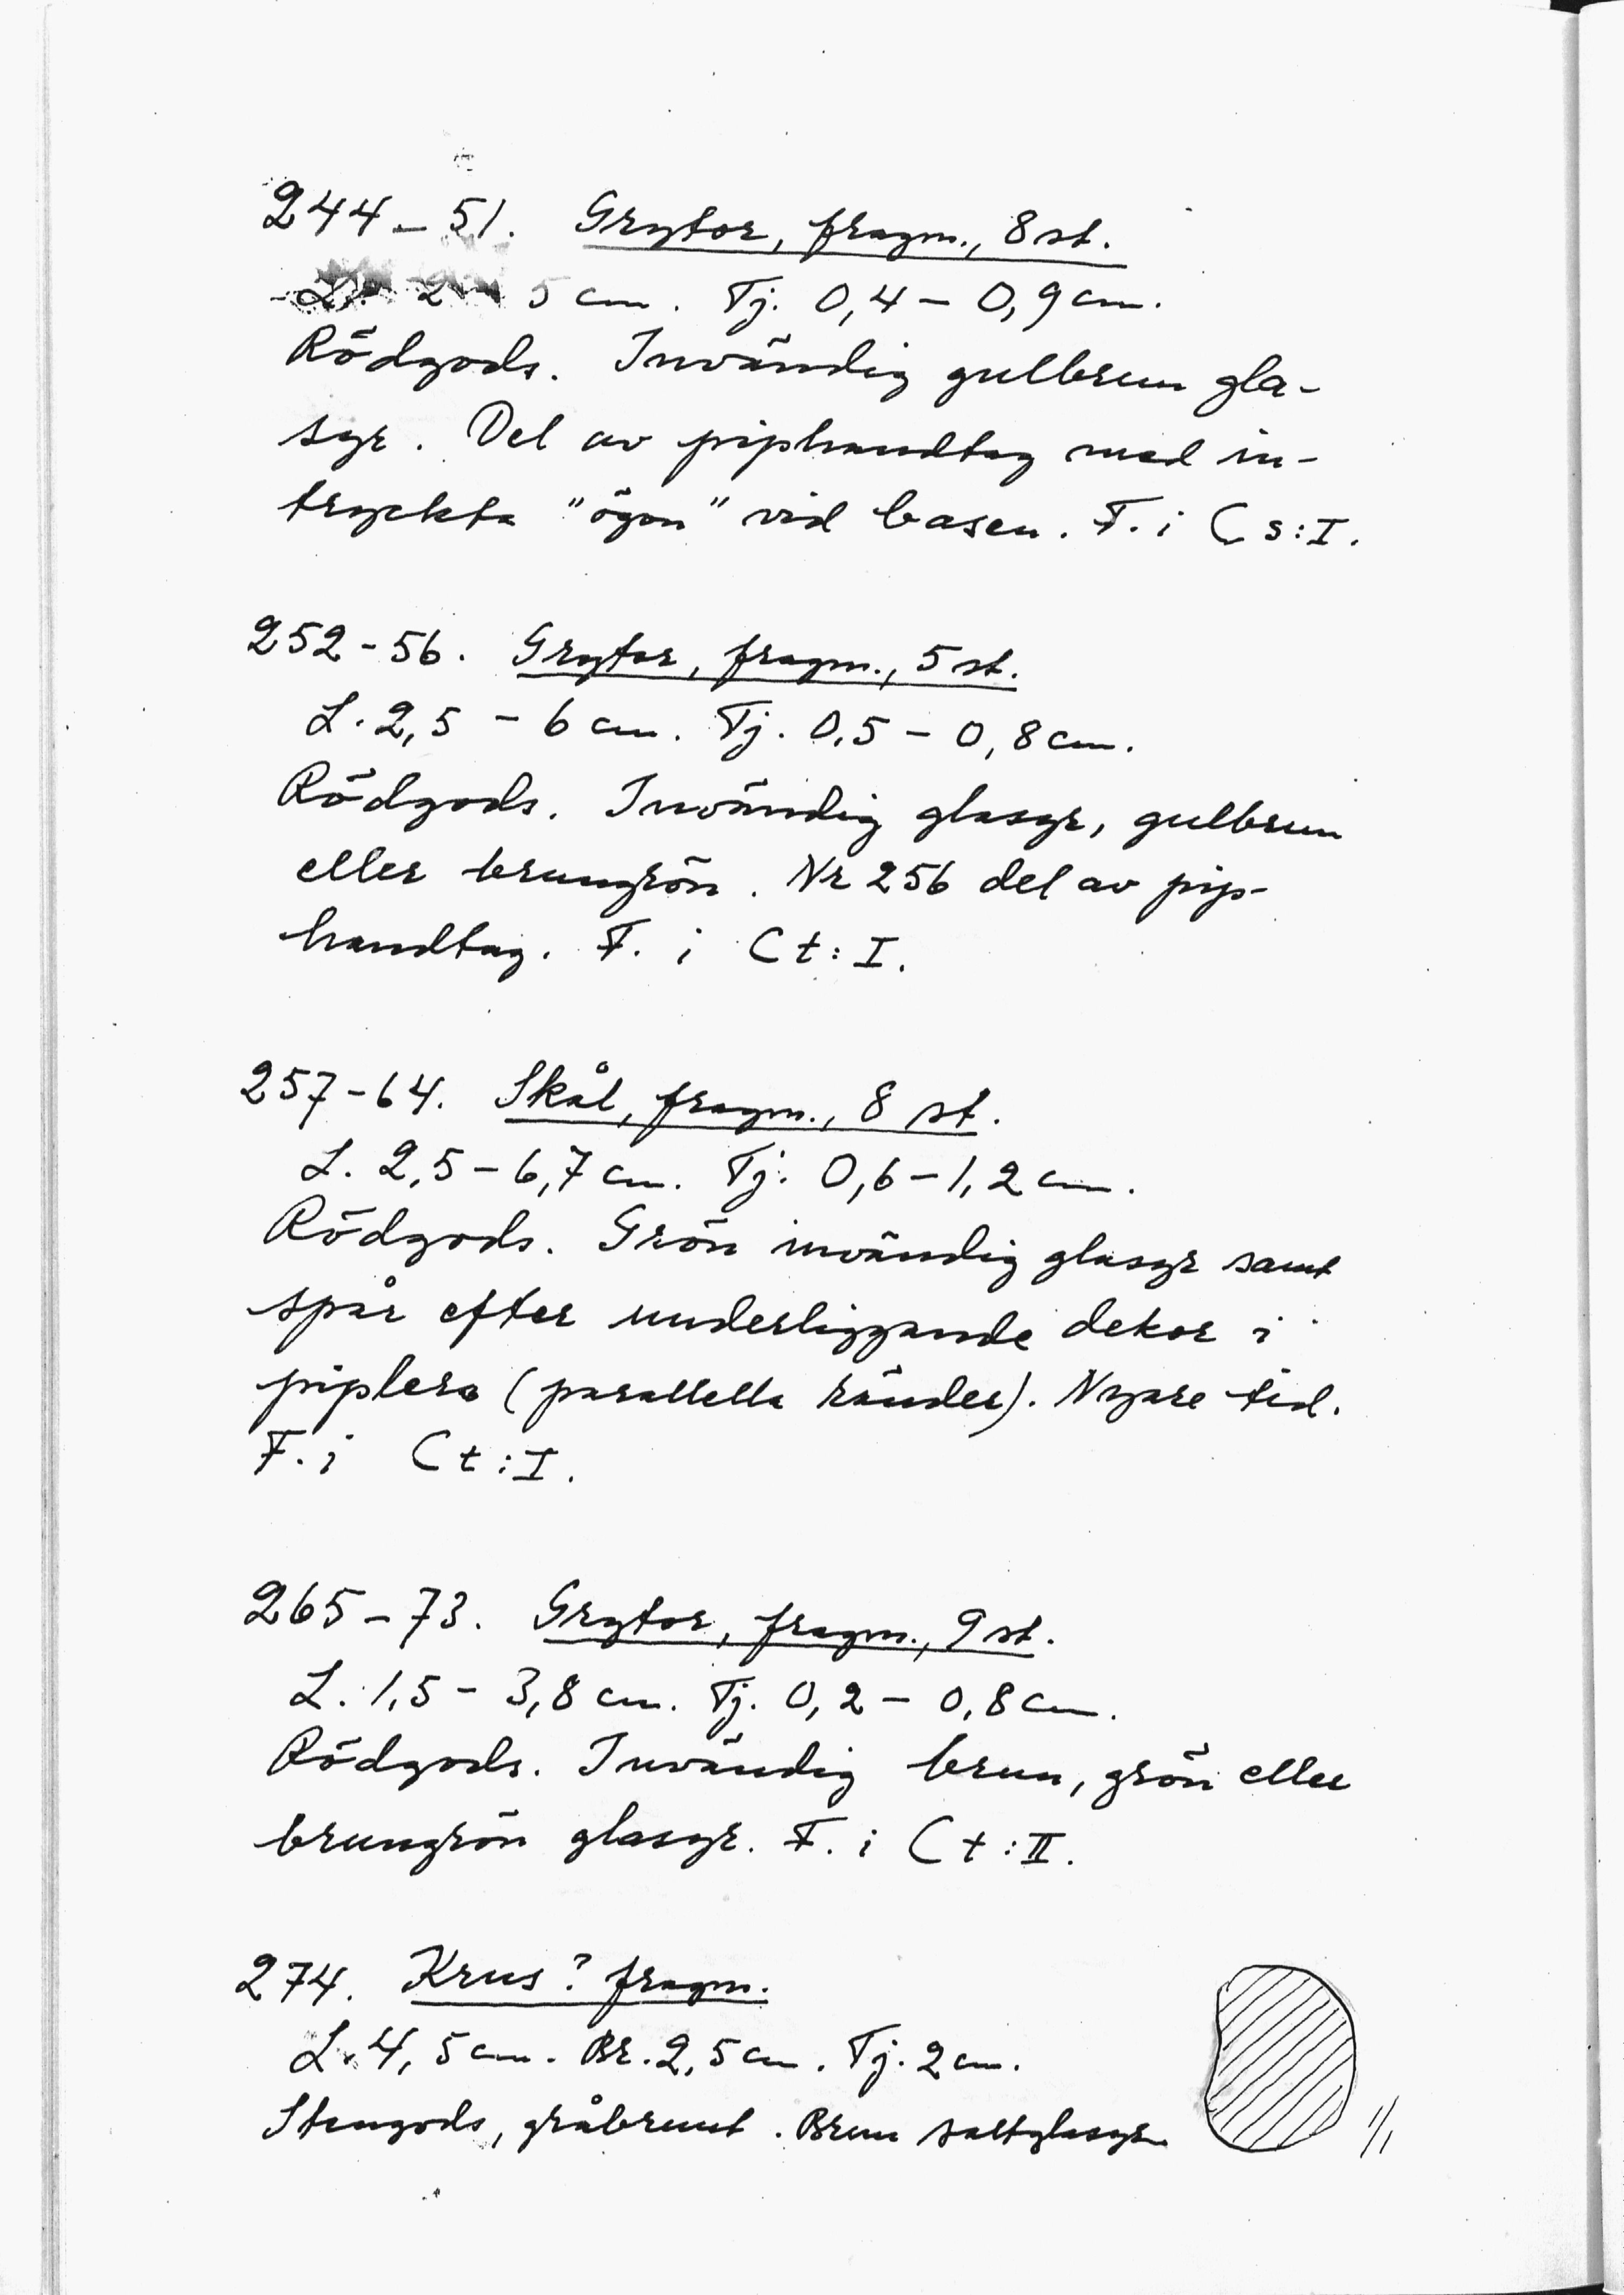 244-51. Grytor, fragm., 8 st.
L. 2 - 5 cm. Tj. 0,4 - 0,9 cm.
Rödgods. Invändig gulbrun gla-
syr. Del av piphandtag med in-
tryckta "ögon" vid basen. F. i Cs:I.
252-56. Grytor, fragm., 5 st.
L. 2,5 - 6 cm. Tj. 0,5 - 0,8 cm.
Rödgods. Invändig glasyr, gulbrun
eller brungrön. Nr 256 del av pip-
handtag. F. i Ct:I.
257-64. Skål, fragm., 8 st.
L. 2,5 - 6,7 cm. Tj. 0,6 - 1,2 cm.
Rödgods. Grön invändig glasyr samt
spår efter underliggande dekor i
piplera (parallella ränder). Nyare tid.
F. i Ct:I.
265-73. Grytor, fragm., 9 st.
L. 1,5 - 3,8 cm. Tj. 0,2 - 0,8 cm.
Rödgods. Invändig brun, grön eller
brungrön glasyr. F. i Ct:II.
274. Krus? fragm.
L. 4,5 cm. Br. 2,5 cm. Tj. 2 cm.
Stengods, gråbrunt. Brun saltglasyr.
1/1